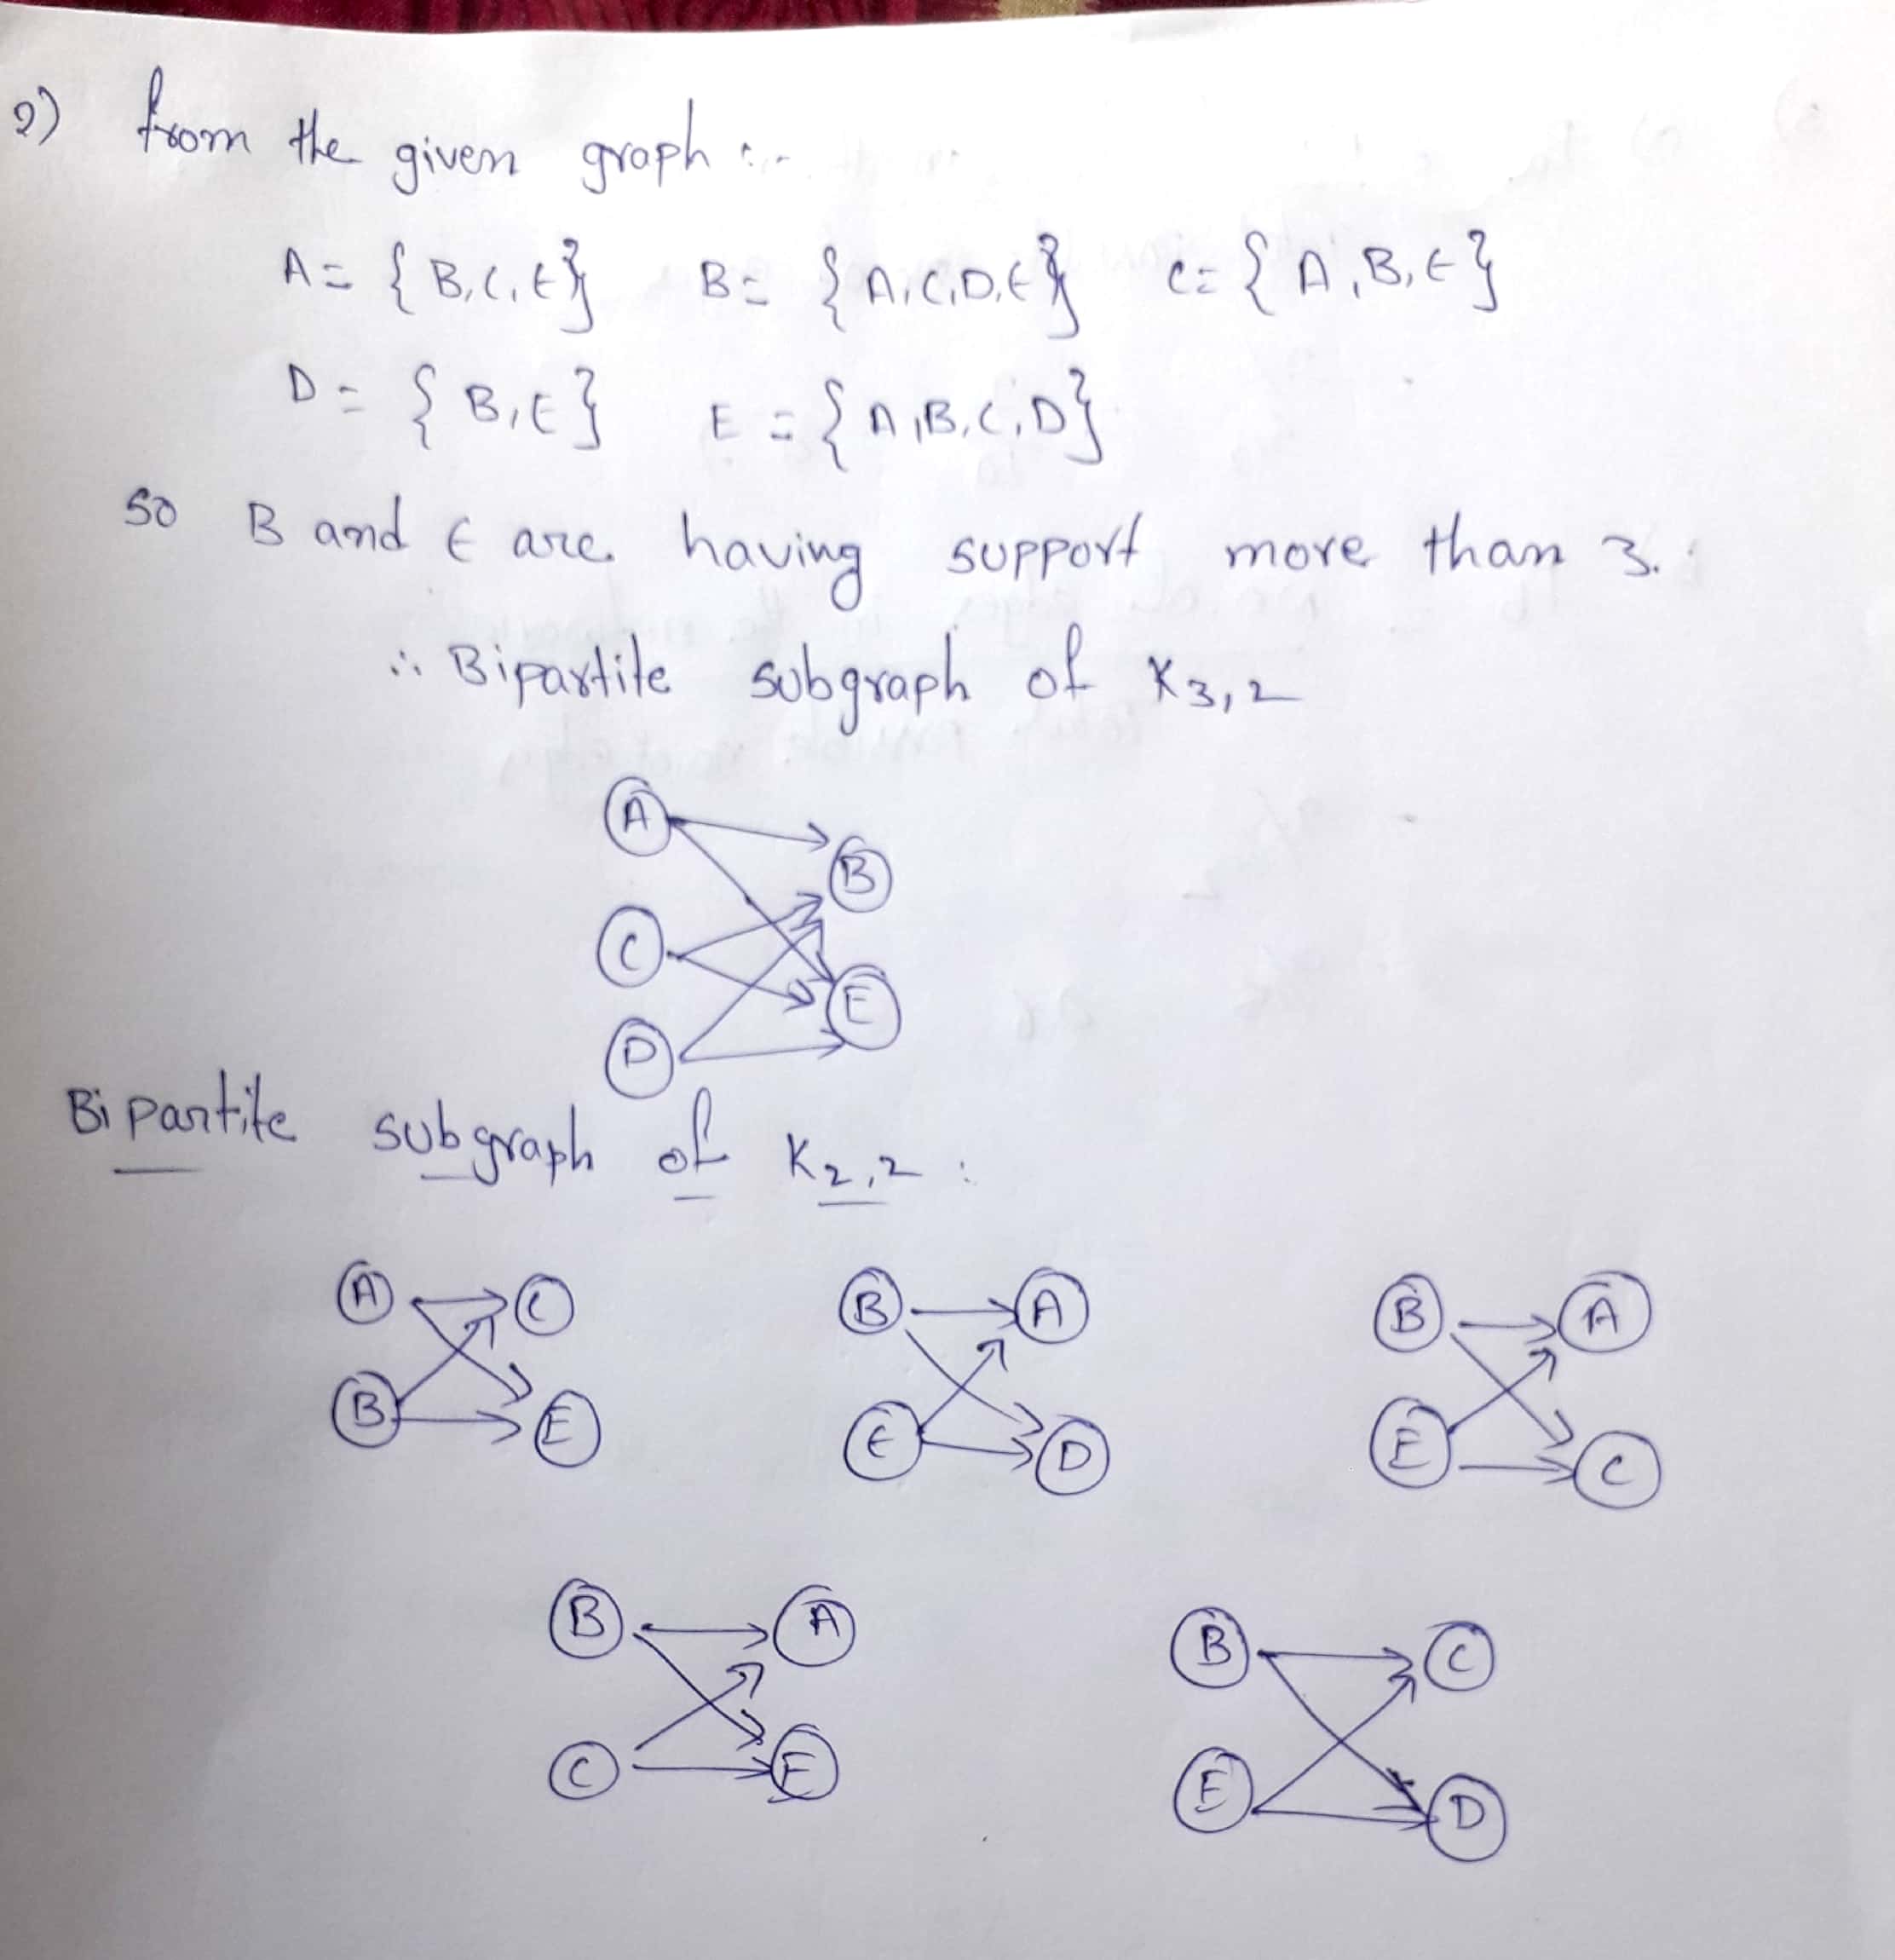 2) from the given graph :-
A = {B,C,E} B = {A,C,D,E} C = {A,B,E}
D = {B,E} E = {A,B,C,D}
so B and E are having support more than 3.
∴ Bipartite subgraph of K3,2
A
B
C
E
D
Bipartite subgraph of K2,2 :
A C B A B A
B E E D E C
B A B C
C E E D